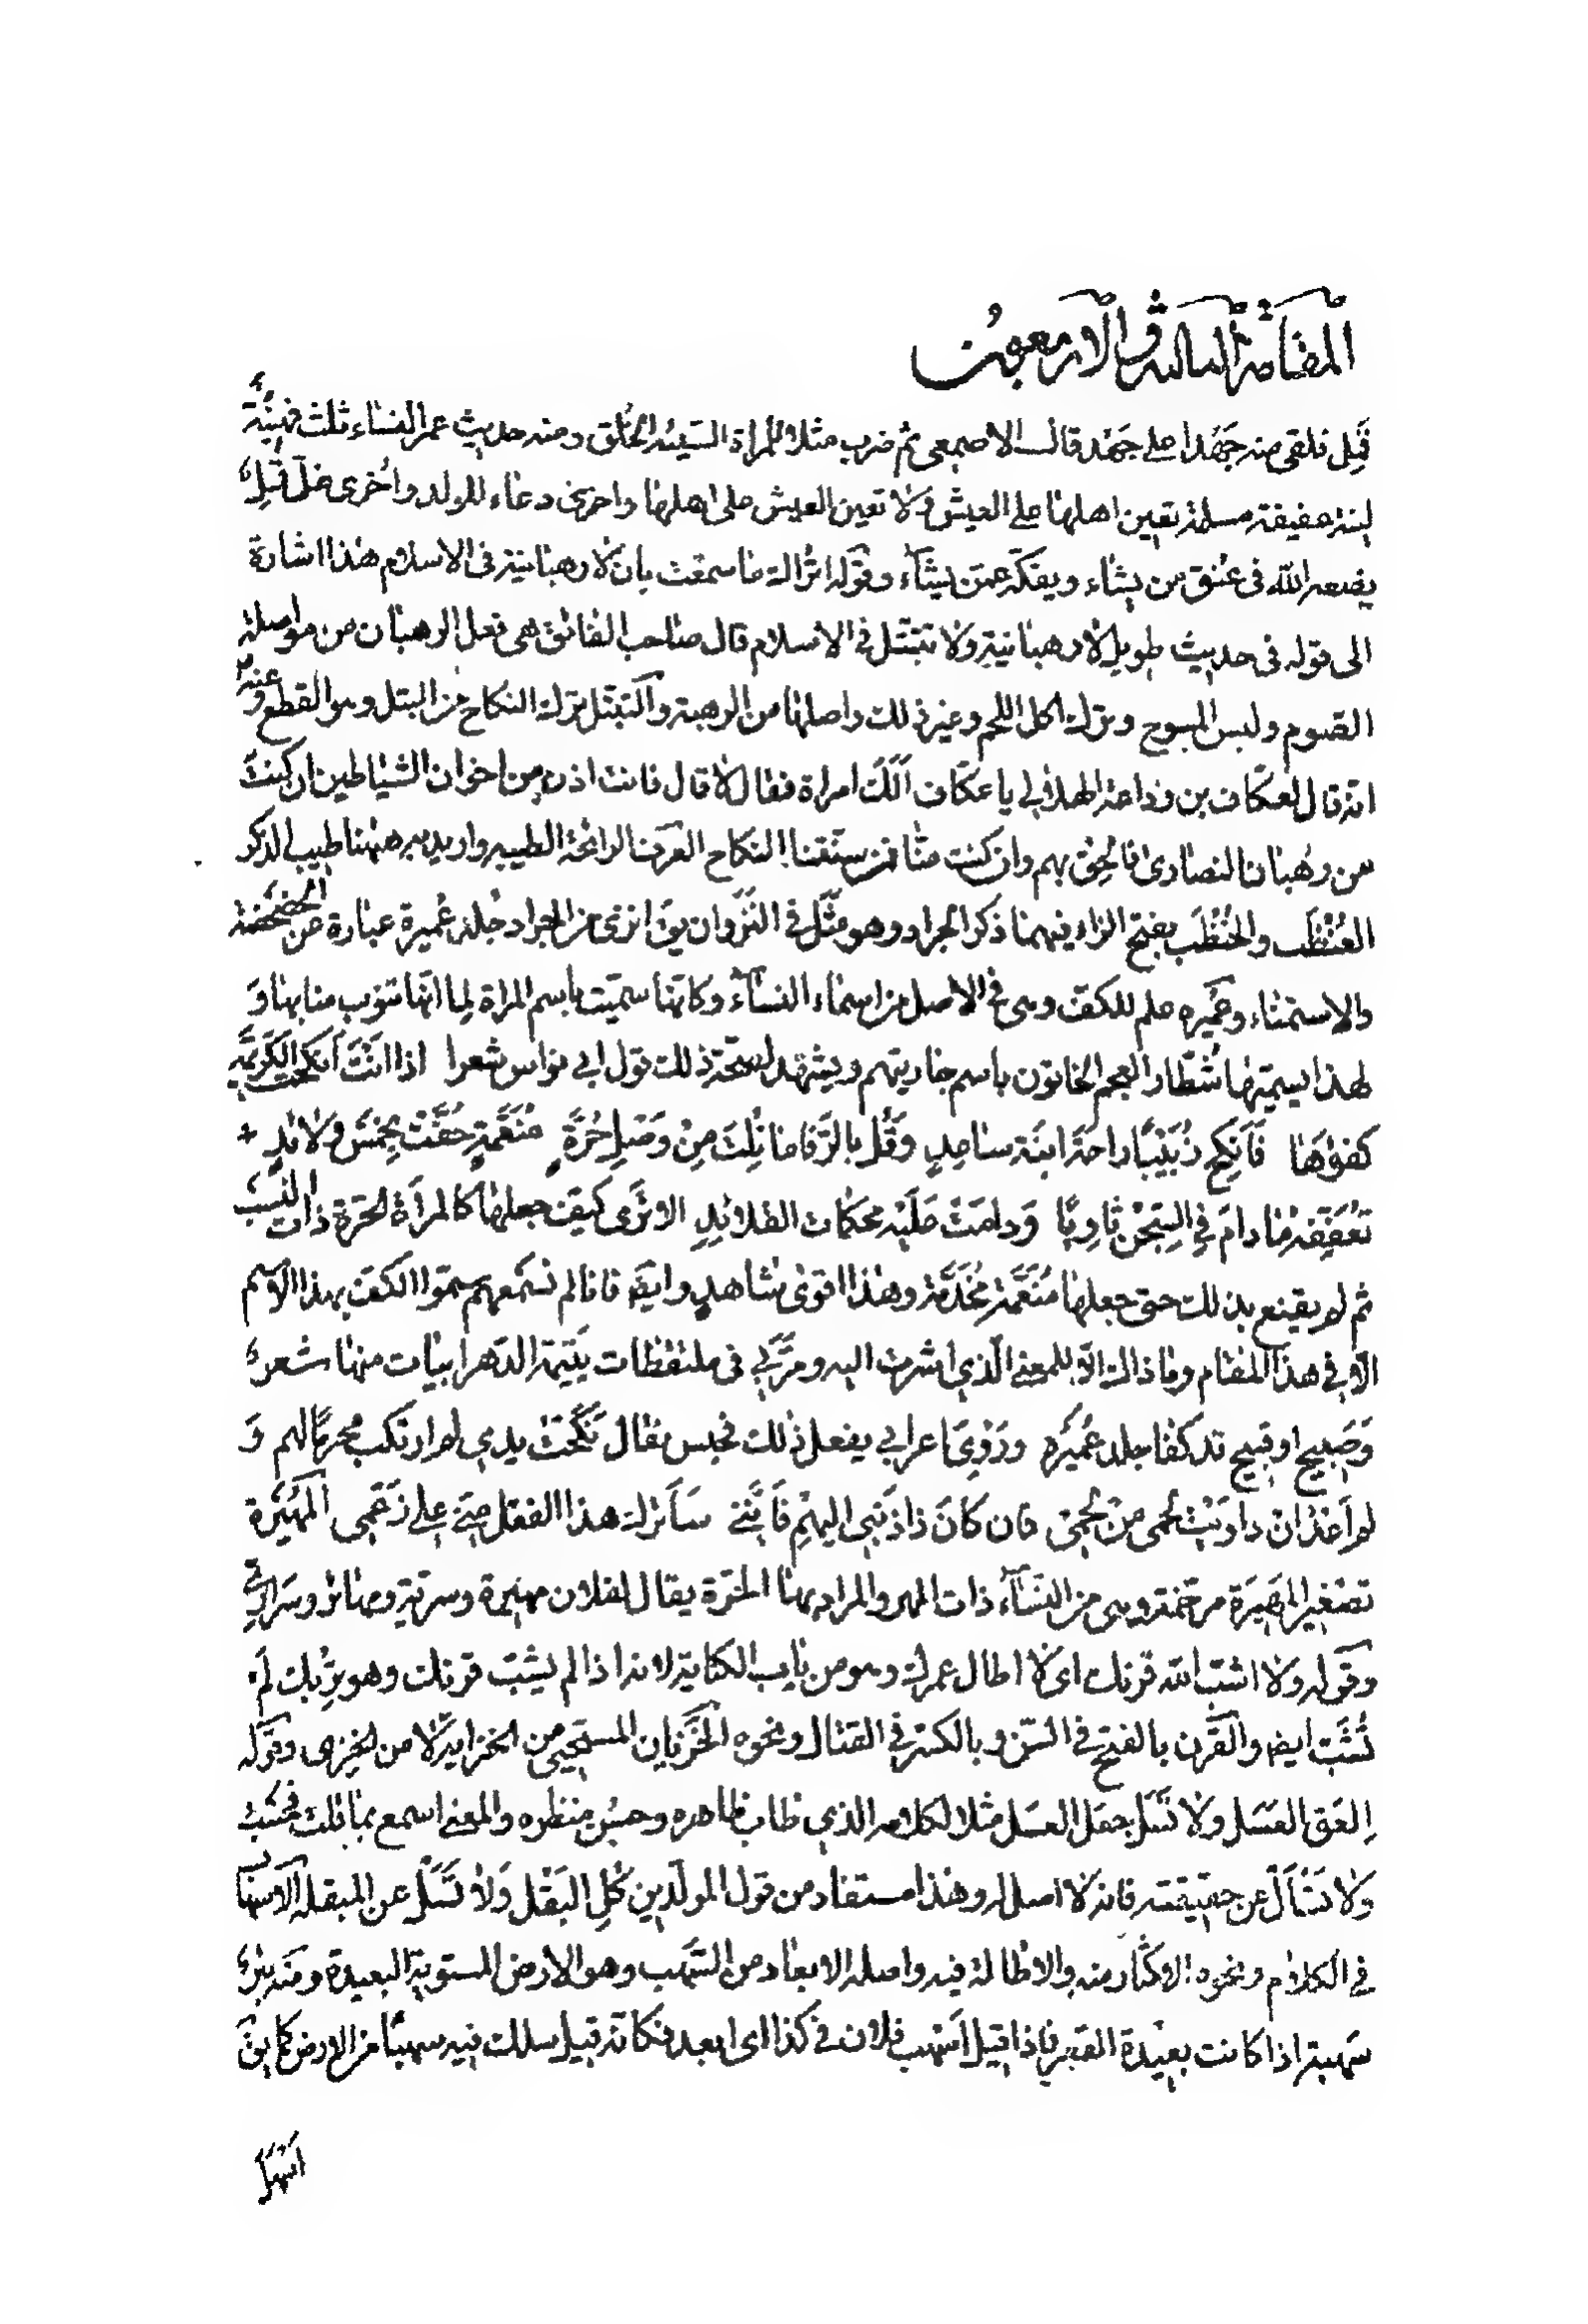 المقامة الثالثة والاربعون
قَمِل فلقي منه جَهْدا على جَهْد قال الاصمعي ثم ضرب مثلا للمراة السيئة الخُلُق ومنه حديث عمر النساء ثلث فهينة
لينة عفيفة مسلمة تعين اهلها على العيش ولا تعين العيش على اهلها واخرى دعاء للولد واخرى غل قَمِل
يضعه الله في عنق من يشاء ويفكه عمن يشاء وقوله اتراك ما سمعت بان لا رهبانية في الاسلام هذا اشارة
الى قوله في حديث طويل لا رهبانية ولا تبتل في الاسلام قال صاحب الفائق هي فعل الرهبان من مواصلة
الصوم ولبس المسوح وترك اكل اللحم وغير ذلك واصلها من الرهبة والتبتل ترك النكاح من البتل وهو القطع وعنه
انه قال لعكاف بن وداعة الهلالي يا عكاف الك امراة فقال لا قال فانت اذن من اخوان الشياطين ان كنت
من رهبان النصارى فالحق بهم وان كنت منا فمن سنتنا النكاح العرف الرائحة الطيبة واريد به ههنا طيب الذكر
العُنْظَب والحُنْظَب بفتح الزاء فيهما ذكر الجراد وهو مثل في النزوان يق انزى من الجراد جلد عُميرة عبارة عن الخضخضة
والاستمناء وعميره علم للكف وهي في الاصل من اسماء النساء وكانها سميت باسم المراة لما انها تنوب منابها و
لهذا يسميها شطار العجم الخاتون باسم جاريتهم ويشهد لصحة ذلك قول ابي نواس شعرا اذا انت انكحت الكريمة
كفؤها فانكح زُبيبا راحة ابنة ساعد وقل بالرفا ما نلت من وصل حُرة منعمة حفت بخمس ولائد
تعففه ما دام في السجن ثاويا ودامت عليه محكمات القلائد الا ترى كيف جعلها كالمراة الحرة ذات النسب
ثم لم يقنع بذلك حتى جعلها مُنَعَّمة مُخَدَّمة وهذا اقوى شاهد وايضا فانا لم نسمعهم سموا الكف بهذا الاسم
الا في هذا المقام وما ذاك الا للمعنى الذي اشرت اليه ومر بي في ملتقطات يتيمة الدهر ابيات منها شعر
وصبيح او قبيح قد كفا جلد عُميره وروي اعرابي يفعل ذلك فحبس فقال نكحت يدي لم ارتكب محرما لهم و
لم اعد ان داويت لحمي من لحمي فان كان ذا ذنبي اليهم فانني سأترك هذا الفعل مني على زعمي المُهَيْرة
تصغير المهيرة مرخمة وهي من النساء ذات المهر والمراد بها الحرة يقال لفلان مهيرة وسرية ومهائر وسراري
وقوله ولا اشب الله قرنك اي لا اطال عمرك وهو من باب الكناية لانه اذا لم يشب قرنك وهو تربك لم
تشب ايضا والقَرن بالفتح في السن وبالكسر في القتال ونحوه الخَزيان المستحيي من الخزاية لا من الخِزي وقوله
العق العسل ولا تسل جعل العسل مثلا لكلامه الذي طاب ظاهره وحسن منظره والمعنى اسمع بما قلت فحسب
ولا تسأل عن حقيقته فانه لا اصل له وهذا مستفاد من قول المولدين كل البقل ولا تسل عن المبقلة الاسهاب
في الكلام ونحوه الاكثار منه والاطالة فيه واصله الابعاد من السهب وهو الارض المستوية البعيدة ومنه بئر
سهبة اذا كانت بعيدة القعر فاذا قيل اسهب فلان في كذا اي ابعد فكانه قيل سلك فيه سهبا من الارض كما يق
اسهل